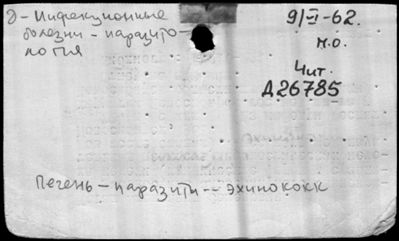 2 - Инфекционные
болезни - паразито-
логия
9/VI-62.
м.о.
Чит.
Д26785
Печень - паразити -- эхинококк